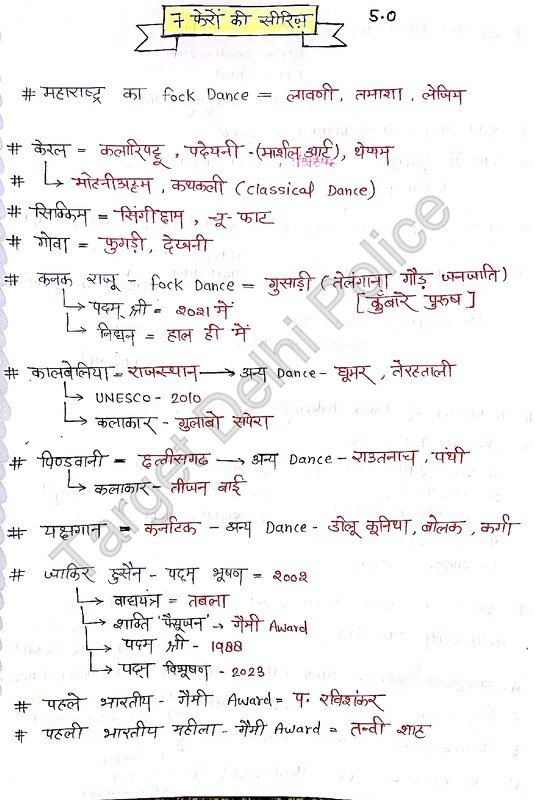 7 फेरों की सीरिज़ 5.0
# महाराष्ट्र का fock Dance = लावणी, तमाशा, लेजिम
# केरल = कलारिपट्टू, पदेयनी -(मार्शल आर्ट), थेय्यम
# ↳ मोहनीअट्टम, कथकली (Classical Dance)
# सिक्किम = सिंगीछाम, चू-फाट
# गोवा = फुगड़ी, देखनी
# कनक राजू - fock Dance = गुसाड़ी (तेलंगाना गौड़ जनजाति)
↳ पद्म श्री = 2021 में [कुंबारे पुरुष]
↳ निधन = हाल ही में
# कालबेलिया = राजस्थान → अन्य Dance - घूमर, तेरहताली
↳ UNESCO - 2010
↳ कलाकार - गुलाबो सपेरा
# पिण्डवानी = छत्तीसगढ → अन्य Dance - राउतनाच, पंथी
↳ कलाकार - तीजन बाई
# यक्षगान = कर्नाटक - अन्य Dance - डोलू कूनिथा, बोलक, कर्गी
# जाकिर हुसैन - पद्म भूषण = 2002
↳ वाद्ययंत्र = तबला
↳ शक्ति 'फ्यूजन' → गैमी Award
↳ पद्म श्री - 1988
↳ पद्म विभूषण - 2023
# पहले भारतीय - गैमी Award = प. रविशंकर
# पहली भारतीय महीला - गैमी Award = तन्वी शाह
Target Delhi Police